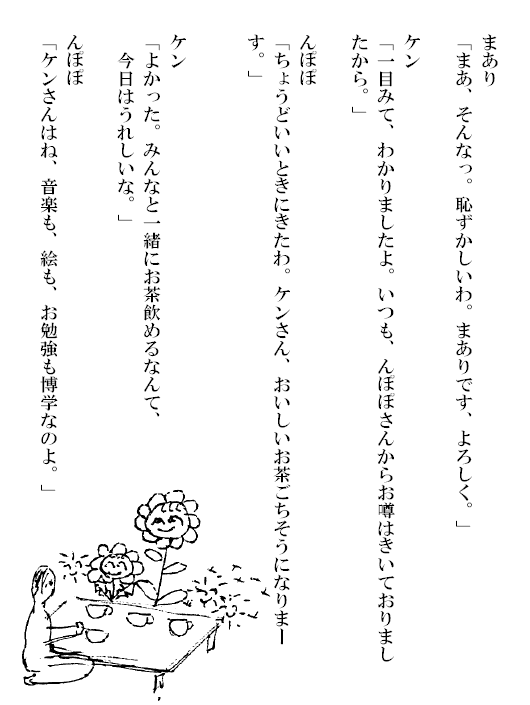 まあり
「まあ、そんなっ。恥ずかしいわ。まありです、よろしく。」
ケン
「一目みて、わかりましたよ。いつも、んぽぽさんからお噂はきいておりまし
たから。」
んぽぽ
「ちょうどいいときにきたわ。ケンさん、おいしいお茶ごちそうになりまー
す。」
ケン
「よかった。みんなと一緒にお茶飲めるなんて、
今日はうれしいな。」
んぽぽ
「ケンさんはね、音楽も、絵も、お勉強も博学なのよ。」